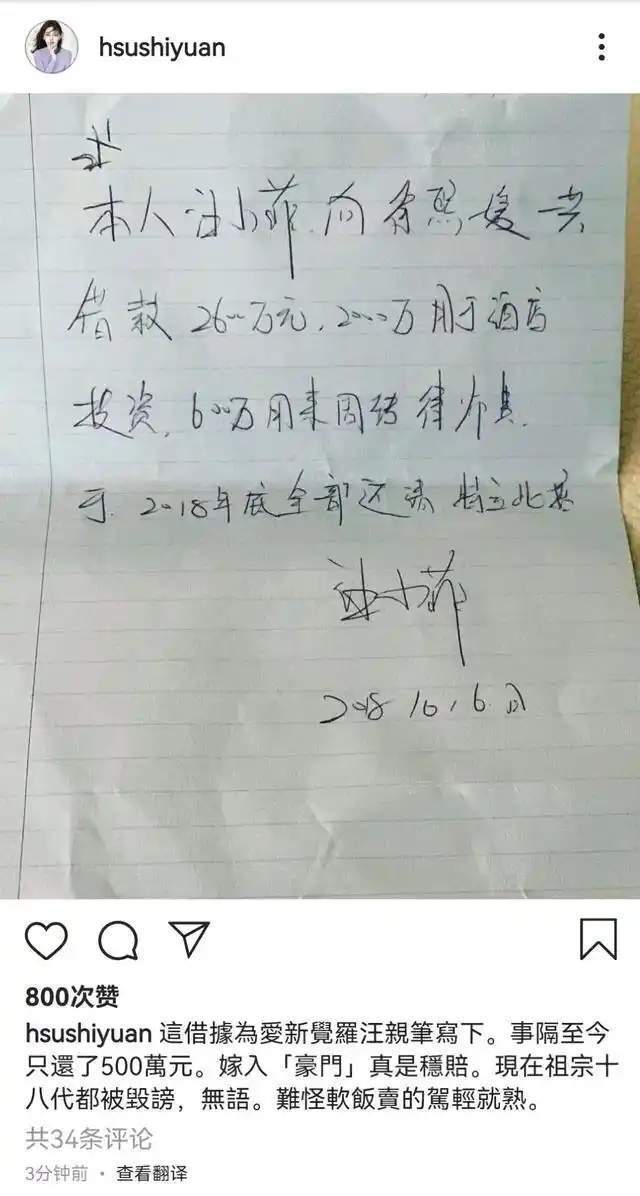 hsushiyuan
本人汪小菲.向徐熙媛共
借款2600万元,2000万用于酒店
投资,600万用来周转律师费.
于2018年底全部还清 特立此基
汪小菲
2018
800次赞
hsushiyuan 這借據為愛新覺羅汪親筆寫下。事隔至今
只還了500萬元。嫁入「豪門」真是穩賠。現在祖宗十
八代都被毀謗，無語。難怪軟飯賣的駕輕就熟。
共34条评论
3分钟前 • 查看翻译